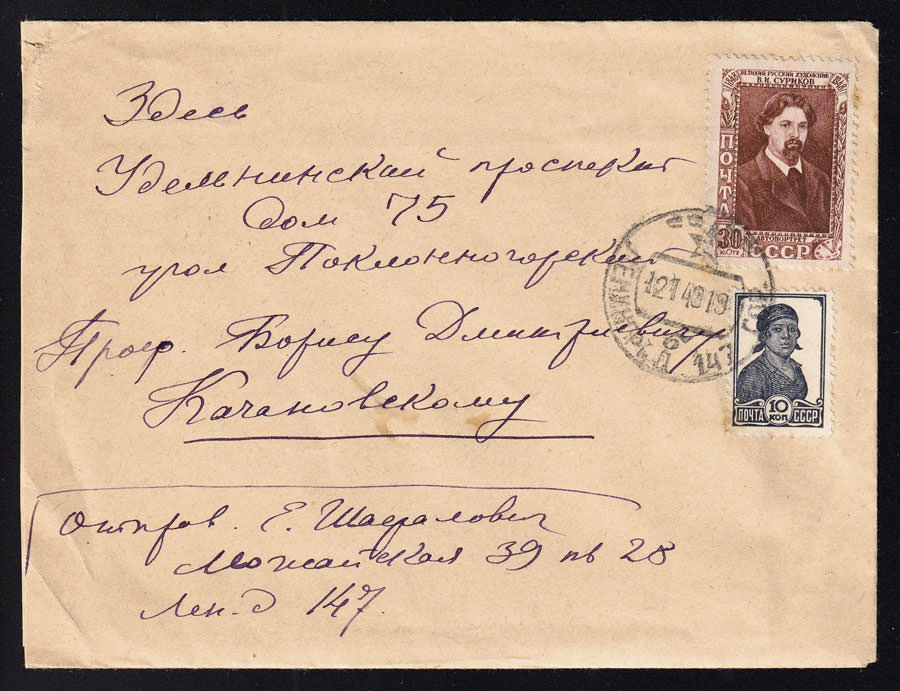 Здесь
Удельнинский проспект
дом 75
угол Поклонногорской
Проф. Борису Дмитриевичу
Качановскому
Отправ. Е. Шафалович
Можайская 39 кв 28
Лен-д 147.
ВЕЛИКИЙ РУССКИЙ ХУДОЖНИК
В.И. СУРИКОВ
1848 1948
ПОЧТА
АВТОПОРТРЕТ
30 СССР
КОП
12 1 49 19
ЛЕНИНГРАД
147
ПОЧТА 10 КОП СССР